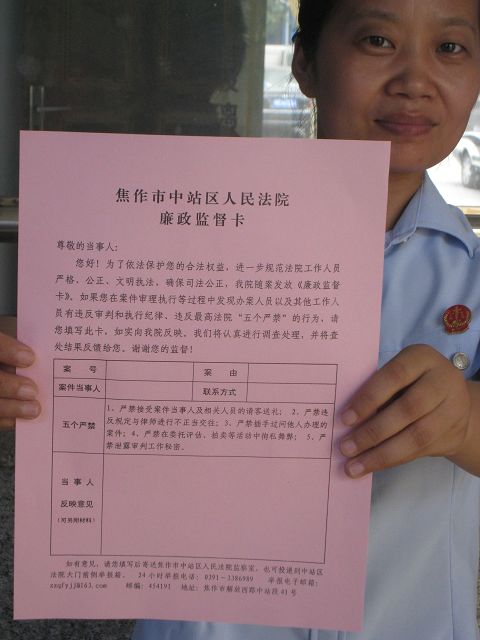 焦作市中站区人民法院
廉政监督卡
尊敬的当事人：
您好！为了依法保护您的合法权益，进一步规范法院工作人员
严格、公正、文明执法，确保司法公正，我院随案发放《廉政监督
卡》。如果您在案件审理执行等过程中发现办案人员以及其他工作人
员有违反审判和执行纪律、违反最高法院“五个严禁”的行为，请
您填写此卡，如实向我院反映。我们将认真进行调查处理，并将查
处结果反馈给您。谢谢您的监督！
案 号 案 由
案件当事人 联系方式
五个严禁
1、严禁接受案件当事人及相关人员的请客送礼； 2、严禁违
反规定与律师进行不正当交往； 3、严禁插手过问他人办理的
案件；4、严禁在委托评估、拍卖等活动中徇私舞弊； 5、严
禁泄露审判工作秘密。
当 事 人
反映意见
（可另附材料）
如有意见，请您填写后寄送焦作市中站区人民法院监察室，也可投递到中站区
法院大门前侧举报箱。 24 小时举报电话：0391-3386989 举报电子邮箱：
zzqfyjj@163.com 邮编：454191 地址：焦作市解放西路中站段 41 号